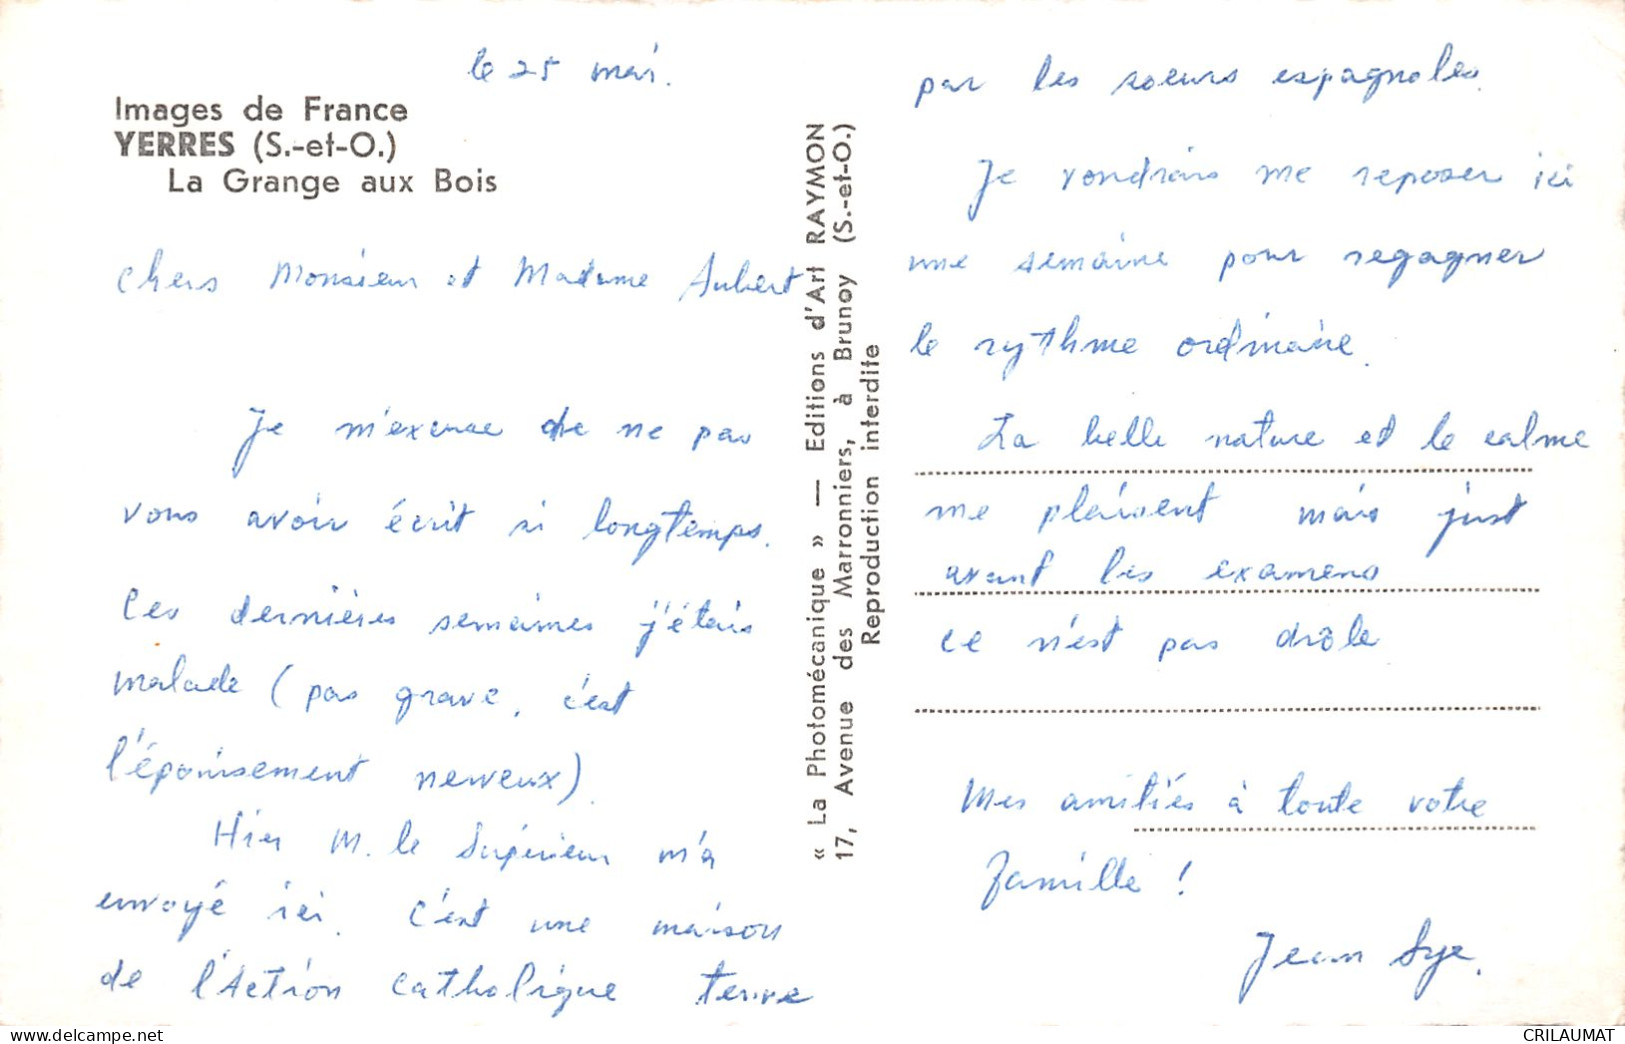 le 25 mai.
Images de France
YERRES (S.-et-O.)
La Grange aux Bois
Chers Monsieur et Madame Aubert
Je m'excuse de ne pas
vous avoir écrit si longtemps.
Ces dernières semaines j'étais
malade (pas grave, c'est
l'épouisement nerveux).
Hier M. le Supérieur m'a
envoyé ici. C'est une maison
de l'Action Catholique tenue
« La Photomécanique » — Editions d'Art RAYMON
17, Avenue des Marronniers, à Brunoy (S.-et-O.)
Reproduction interdite
par les soeurs espagnoles.
Je voudrais me reposer ici
une semaine pour regagner
le rythme ordinaire.
La belle nature et le calme
me plaisent mais just
avant les examens
ce n'est pas drôle
Mes amitiés à toute votre
famille !
Jean Sye.
CRILAUMAT